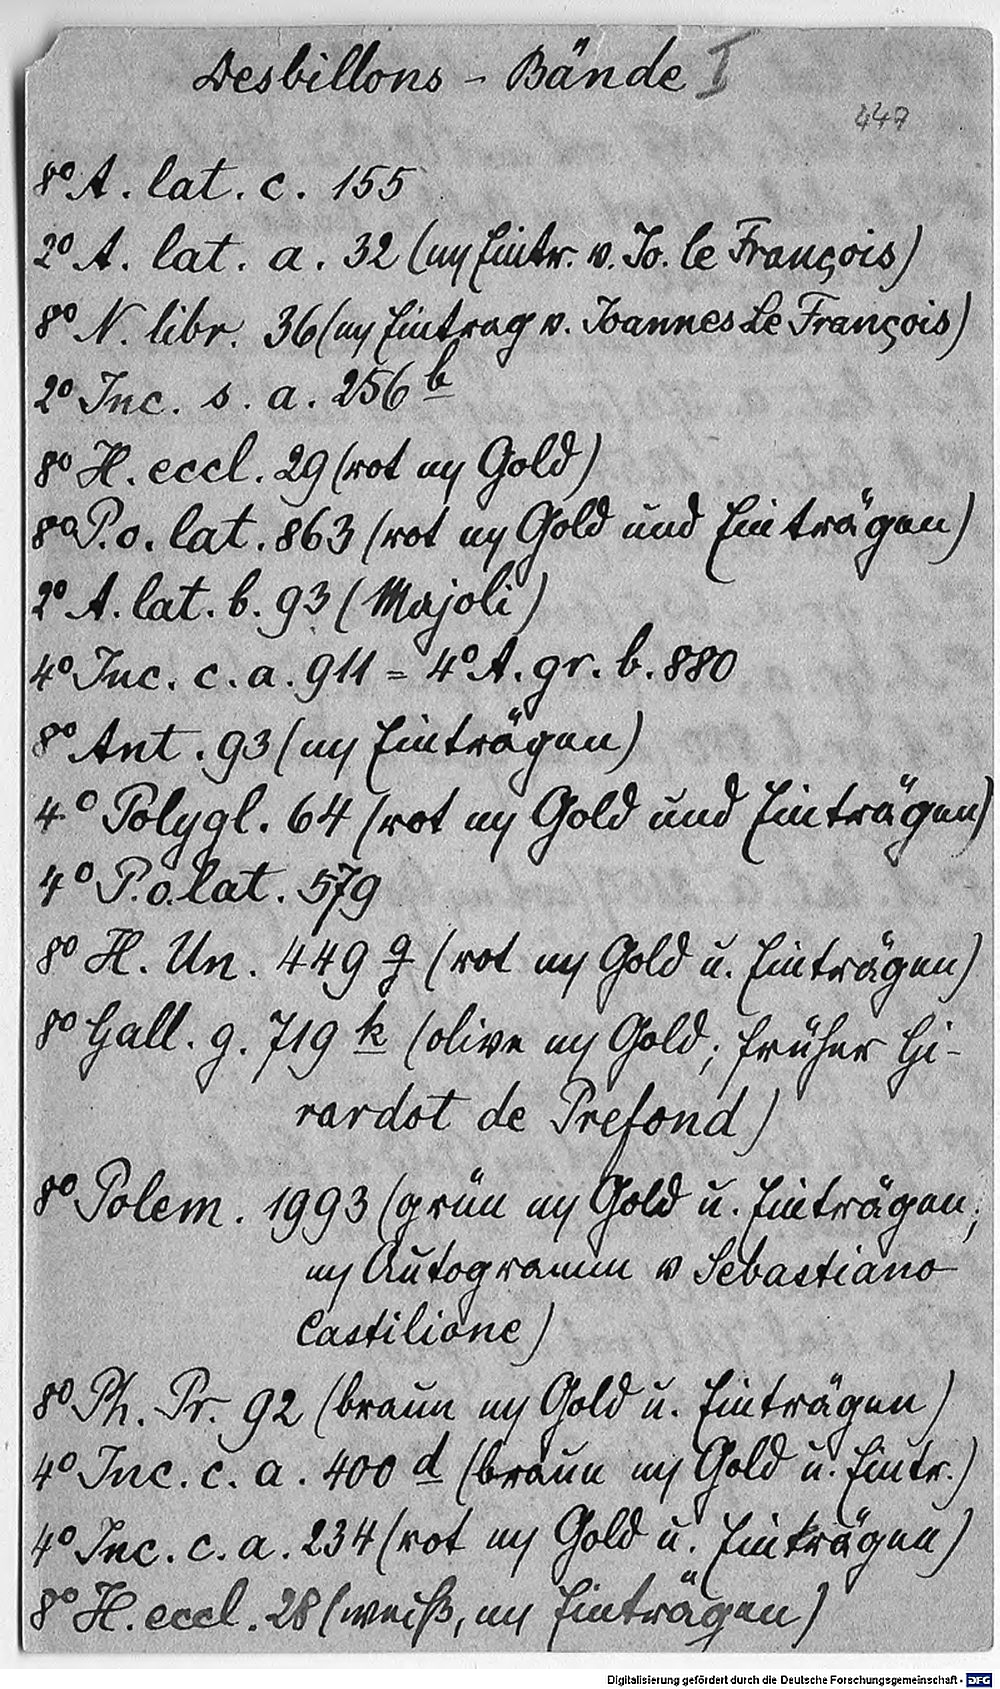 Desbillons - Bände I
447
8° A. lat. c. 155
2° A. lat. a. 32 (m Eintr. v. Jo. le François)
8° N. libr. 36 (m Eintrag v. Joannes Le François)
2° Inc. s. a. 256 b
8° H. eccl. 29 (rot m Gold)
8° P.o. lat. 863 (rot m Gold und Einträgen)
2° A. lat. b. 93 (Majoli)
4° Inc. c. a. 911 = 4° A. gr. b. 880
8° Ant. 93 (m Einträgen)
4° Polygl. 64 (rot m Gold und Einträgen)
4° P.o. lat. 579
8° H. Un. 449 g (rot m Gold u. Einträgen)
8° Gall. g. 719 k (olive m Gold; früher Gi-
rardot de Prefond)
8° Polem. 1993 (grün m Gold u. Einträgen;
m Autogramm v Sebastiano
Castilione)
8° Ph. Pr. 92 (braun m Gold u. Einträgen)
4° Inc. c. a. 400 d (braun m Gold u. Eintr.)
4° Inc. c. a. 234 (rot m Gold u. Einträgen)
8° H. eccl. 28 (weiß, m Einträgen)
Digitalisierung gefördert durch die Deutsche Forschungsgemeinschaft - DFG